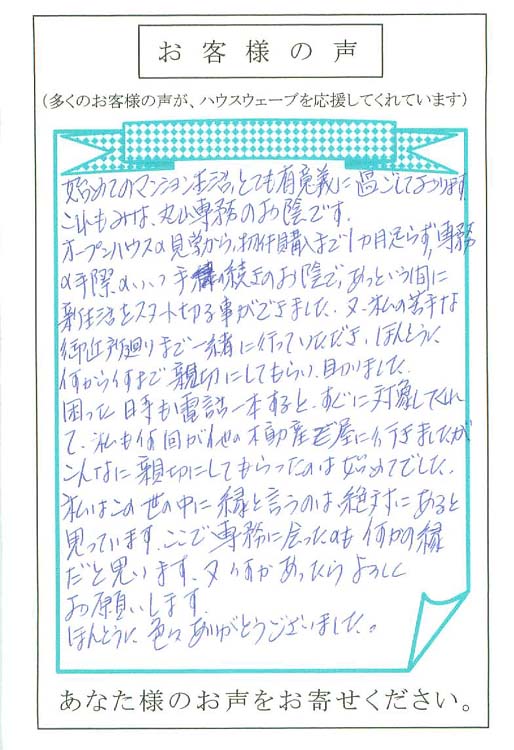 お客様の声
（多くのお客様の声が、ハウスウェーブを応援してくれています）
始めてのマンション生活、とても有意義に過ごしております。
これもみな、丸山専務のお陰です。
オープンハウスの見学から、物件購入まで1カ月足らず、専務
の手際のいい手続きのお陰で、あっという間に
新生活をスタート切る事ができました。又、私の苦手な
御近所廻りまで一緒に行っていただき、ほんとうに
何から何まで親切にしてもらい、助かりました。
困った時も電話一本すると、すぐに対象してくれ
て、私も何回か他の不動産屋に行きましたが
こんなに親切にしてもらったのは始めてでした。
私はこの世の中に縁と言うのは絶対にあると
思っています。ここで専務に会ったのも何かの縁
だと思います。又何かあったらよろしく
お願いします。
ほんとうに、色々ありがとうございました。
あなた様のお声をお寄せください。